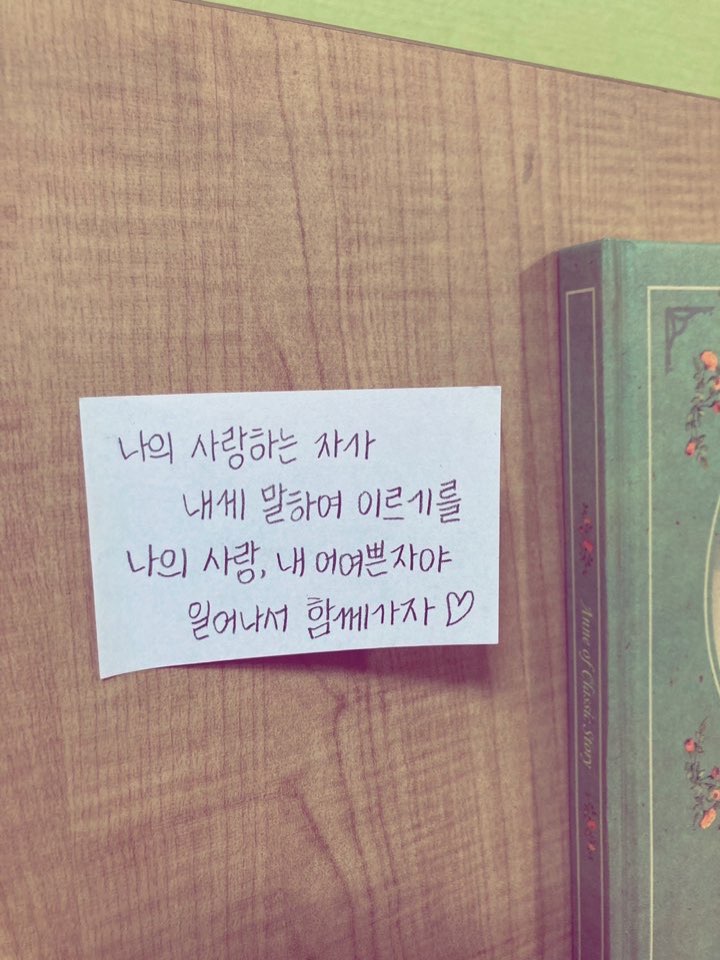 나의 사랑하는 자가
내게 말하여 이르기를
나의 사랑, 내 어여쁜자야
일어나서 함께가자♡
Anne of Classic Story